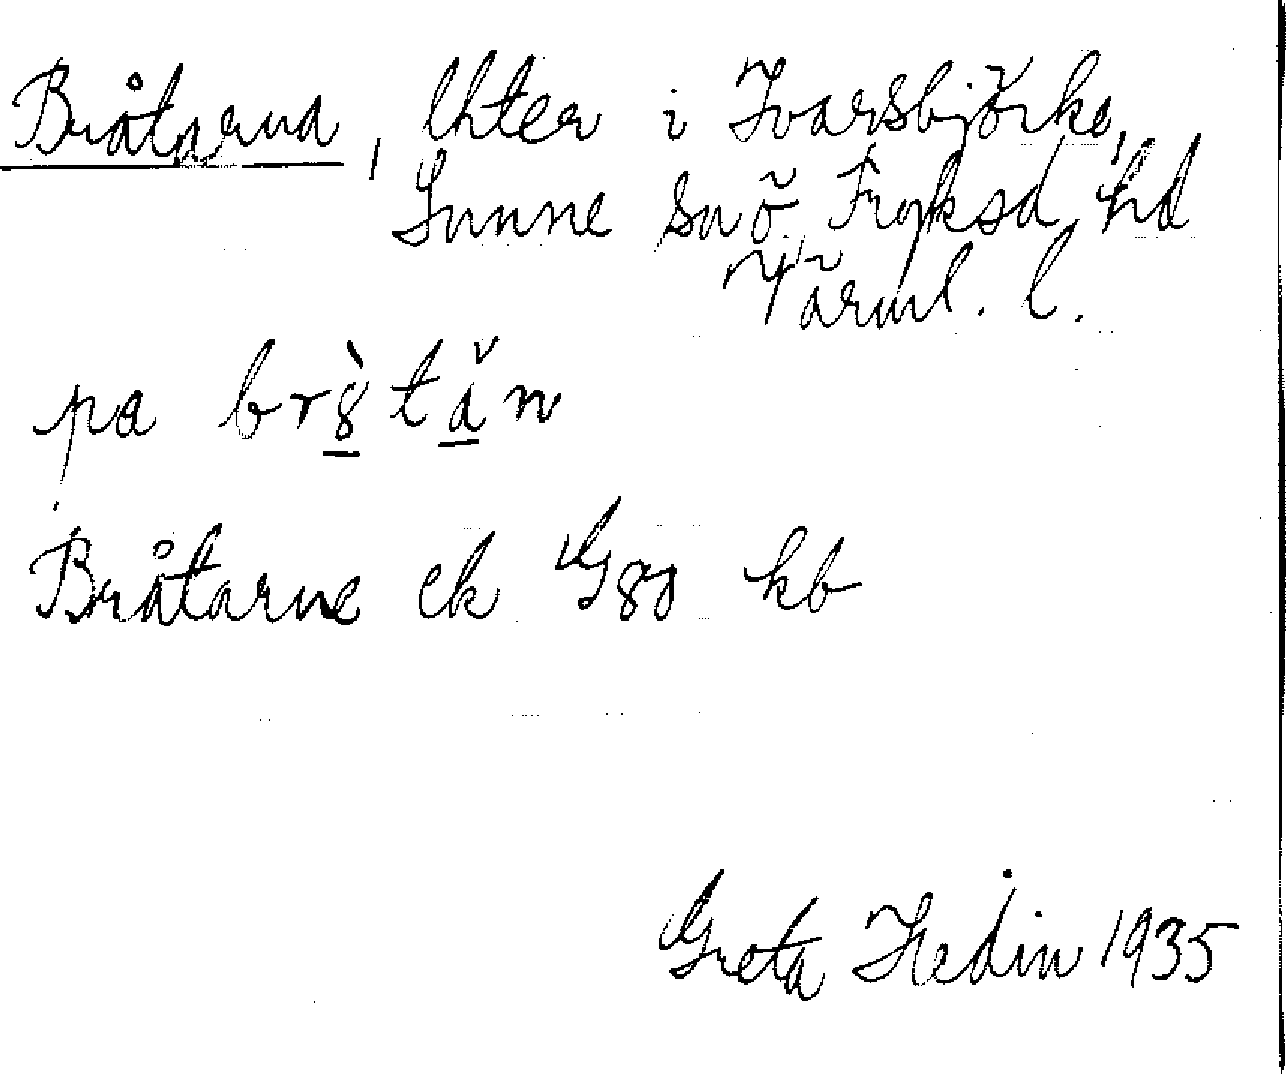 Bråtarna, lhter i Ivarsbjörke,
Sunne sn ö. Fryksd. hd
Värml. l.
pa br8̀tăn
Bråtarne ek G80 kb
Greta Hedin 1935